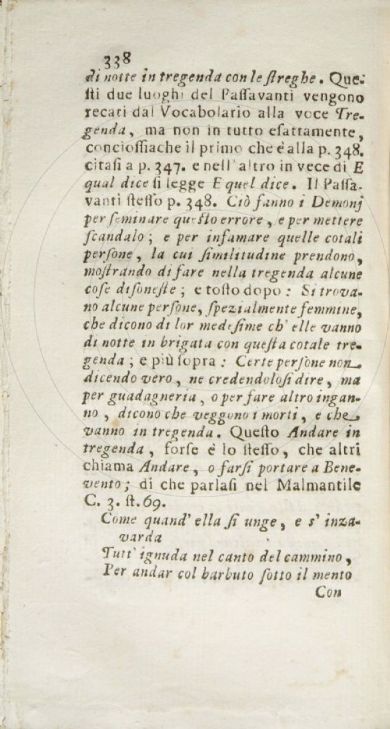 338
di notte in tregenda con le ſtreghe. Que-
ſti due luoghi del Paſſavanti vengono
recati dal Vocabolario alla voce Tre-
genda, ma non in tutto eſattamente,
conciosſiache il primo che è alla p. 348.
citaſi a p. 347. e nell' altro in vece di E
qual dice ſi legge E quel dice. Il Paſſa-
vanti ſteſſo p. 348. Ciò fanno i Demonj
per ſeminare queſto errore, e per mettere
ſcandalo; e per infamare quelle cotali
perſone, la cui ſimilitudine prendono,
moſtrando di fare nella tregenda alcune
coſe diſoneſte; e toſto dopo: Si trova-
no alcune perſone, ſpezialmente femmine,
che dicono di lor medeſime ch' elle vanno
di notte in brigata con queſta cotale tre-
genda; e più ſopra: Certe perſone non
dicendo vero, ne credendoloſi dire, ma
per guadagneria, o per fare altro ingan-
no, dicono che veggono i morti, e che
vanno in tregenda. Queſto Andare in
tregenda, forſe è lo ſteſſo, che altri
chiama Andare, o farſi portare a Bene-
vento; di che parlaſi nel Malmantile
C. 3. ſt. 69.
Come quand' ella ſi unge, e s' inza-
varda
Tutt' ignuda nel canto del cammino,
Per andar col barbuto ſotto il mento
Con